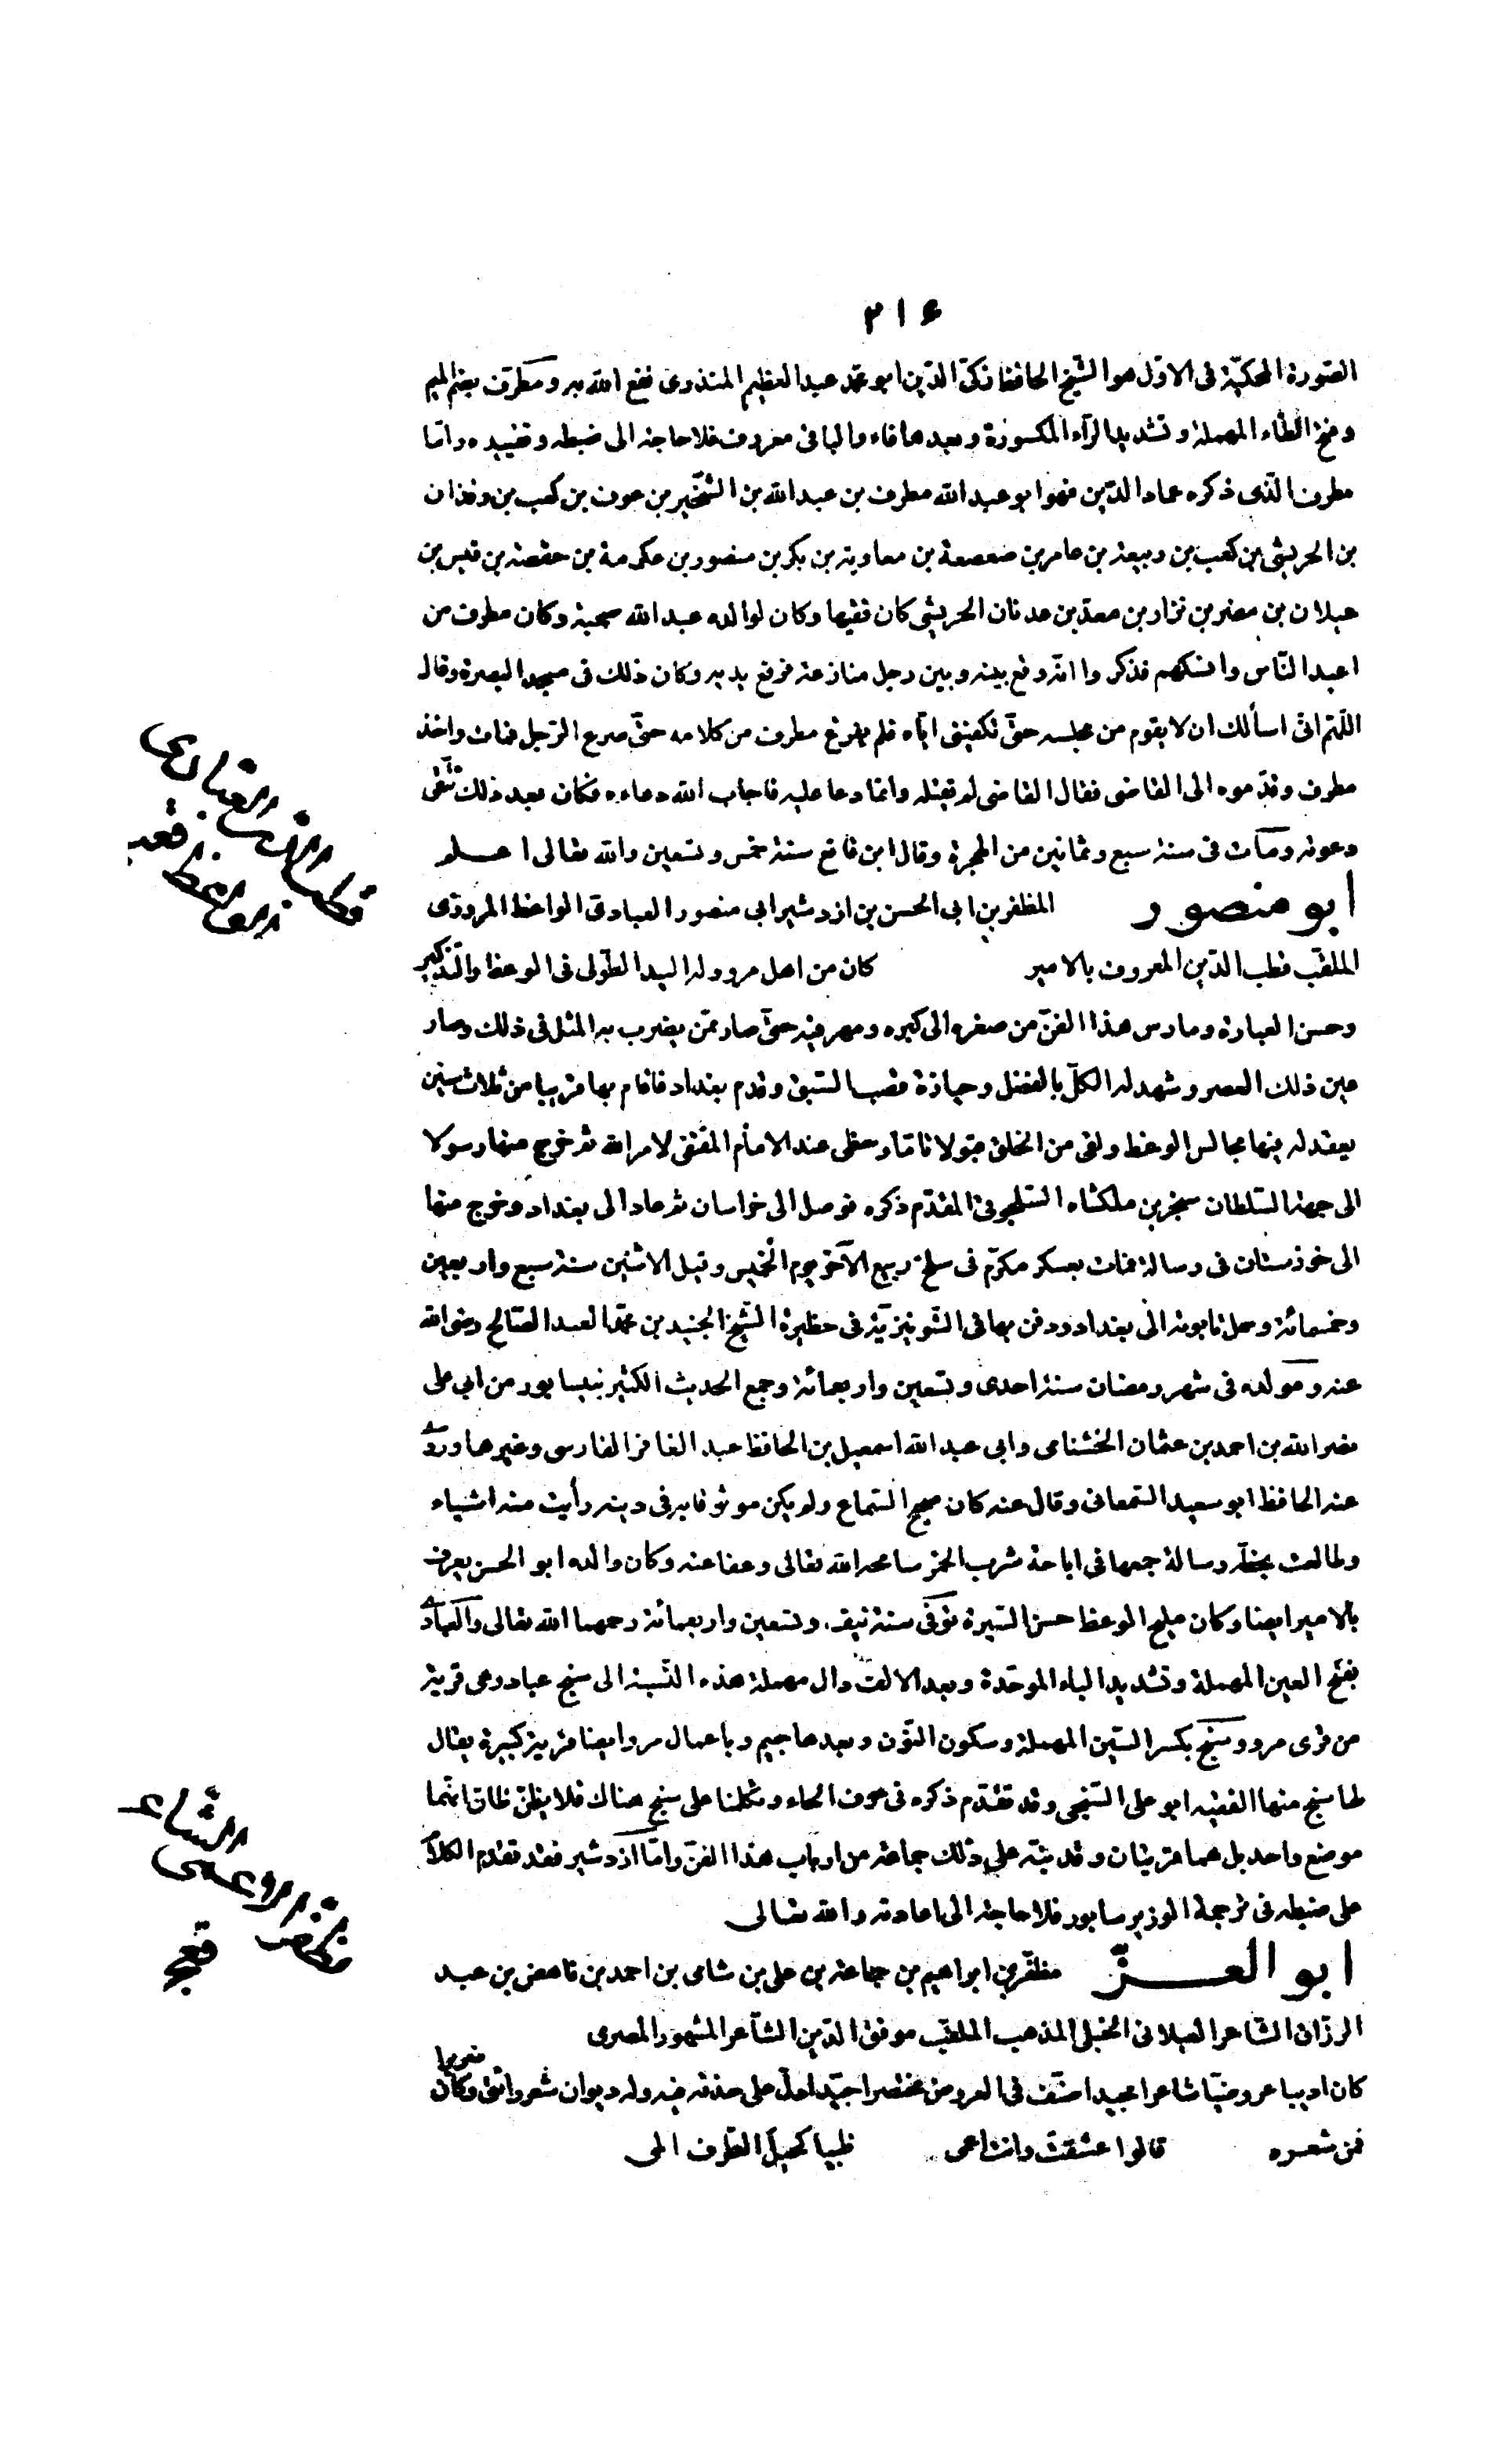 ٢١٤
الصورة المحكيّة فى الاوّل هو الشيخ الحافظ زكىّ الدّين ابو محمّد عبد العظيم المنذرى نفع الله به ومطرّف بضم الميم
وفتح الطّاء المهملة وتشديد الرّاء المكسورة وبعدها فاء والباقى معروف فلا حاجة الى ضبطه وتقييده وامّا
مطرف الّذى ذكره عماد الدّين فهو ابو عبد الله مطرف بن عبد الله بن الشّخّير بن عوف بن كعب بن وقدان
بن الحريش بن كعب بن ربيعة بن عامر بن صعصعة بن معاوية بن بكر بن منصور بن عكرمة بن حفصة بن قيس بن
عيلان بن مضر بن نزار بن معدّ بن عدنان الحريشى كان فقيها وكان لوالده عبد الله صحبة وكان مطرف من
اعبد النّاس وانسكهم فذكروا انّه وقع بينه وبين رجل منازعة فرفع يديه وكان ذلك فى مسجد البصرة وقال
اللّهمّ انّى اسألك ان لا يقوم من مجلسه حتّى تكفينى ايّاه فلم يفرغ مطرف من كلامه حتّى صرع الرّجل فمات واخذ
مطرف وقدّموه الى القاضى فقال القاضى لم يقتله وانّما دعا عليه فاجاب الله دعاءه فكان بعد ذلك تتّقى
دعوته ومات فى سنة سبع وثمانين من الهجرة وقال ابن قانع سنة خمس وتسعين والله تعالى اعلم
ابو منصور المظفر بن ابى الحسن بن ازدشير ابى منصور العبادى الواعظ المروزى
الملقّب قطب الدّين المعروف بالامير كان من اهل مرو وله اليد الطّولى فى الوعظ والتّذكير
وحسن العبارة ومارس هذا الفنّ من صغره الى كبره ومهر فيه حتّى صار ممّن يضرب به المثل فى ذلك وصار
عين ذلك العصر وشهد له الكلّ بالفضل وحيازة قصب السّبق وقدم بغداد فاقام بها قريبا من ثلاث سنين
يعقد له فيها مجالس الوعظ ولقى من الخلق قبولا تامّا وحظى عند الامام المقتفى لامر الله ثم خرج منها رسولا
الى جهة السّلطان سنجر بن ملكشاه السّلجوقى المقدّم ذكره فوصل الى خراسان ثم عاد الى بغداد وخرج منها
الى خوزستان فى رسالة فمات بعسكر مكرّم فى سلخ ربيع الآخر يوم الخميس وقيل الاثنين سنة سبع واربعين
وخمسمائة وحمل تابوته الى بغداد ودفن بها فى الشّونيزيّة فى حظيرة الشّيخ الجنيد بن محمّد العبد الصّالح رضى الله
عنه ومولده فى شهر رمضان سنة احدى وتسعين واربعمائة وجمع الحديث الكثير بنيسابور من ابى على
نصر الله بن احمد بن عثمان الخشنامى وابى عبد الله اسمعيل بن الحافظ عبد الغافر الفارسى وغيرها وروى
عنه الحافظ ابو سعيد السّمعانى وقال عنه كان صحيح السّماع ولم يكن موثوقا به فى دينه رأيت منه اشياء
وطالعت بخطّه رسالة جمعها فى اباحة شرب الخمر سامحه الله تعالى وعفا عنه وكان والده ابو الحسن يعرف
بالامير ايضا وكان مليح الوعظ حسن السّيرة توفّى سنة نيف وتسعين واربعمائة رحمهما الله تعالى والعبّادى
بفتح العين المهملة وتشديد الباء الموحّدة وبعد الالف دال مهملة هذه النّسبة الى سنج عباد وهى قرية
من قرى مرو وسنج بكسر السّين المهملة وسكون النّون وبعدها جيم وباعمال مرو ايضا قرية كبيرة يقال
لها سنج منها الفقيه ابو على السّنجى وقد تقدّم ذكره فى حرف الحاء وتكلمنا على سنج هناك فلا يظنّ ظانّ انّهما
موضع واحد بل هما قريتان وقد نبّه على ذلك جماعة من ارباب هذا الفنّ وامّا ازدشير فقد تقدّم الكلام
على ضبطه فى ترجمة الوزير سابور فلا حاجة الى اعادته والله تعالى
ابو العزّ مظفّر بن ابراهيم بن جماعة بن على بن شامى بن احمد بن ناهض بن عبد
الرزّاق الشّاعر العيلانى الحنبلى المذهب الملقّب موفق الدّين الشّاعر المشهور المصرى
كان اديبا عروضيّا شاعرا مجيدا صنّف فى العروض مختصرا جيّدا دلّ على حذقه فيه وله ديوان شعر رائق وكان ضريرا
فمن شعره قالوا عشقت وانت اعمى ظبيا كحيل الطّرف المى
قطب الدين العبادى
الواعظ
مظفر الاعمى الشّاعر